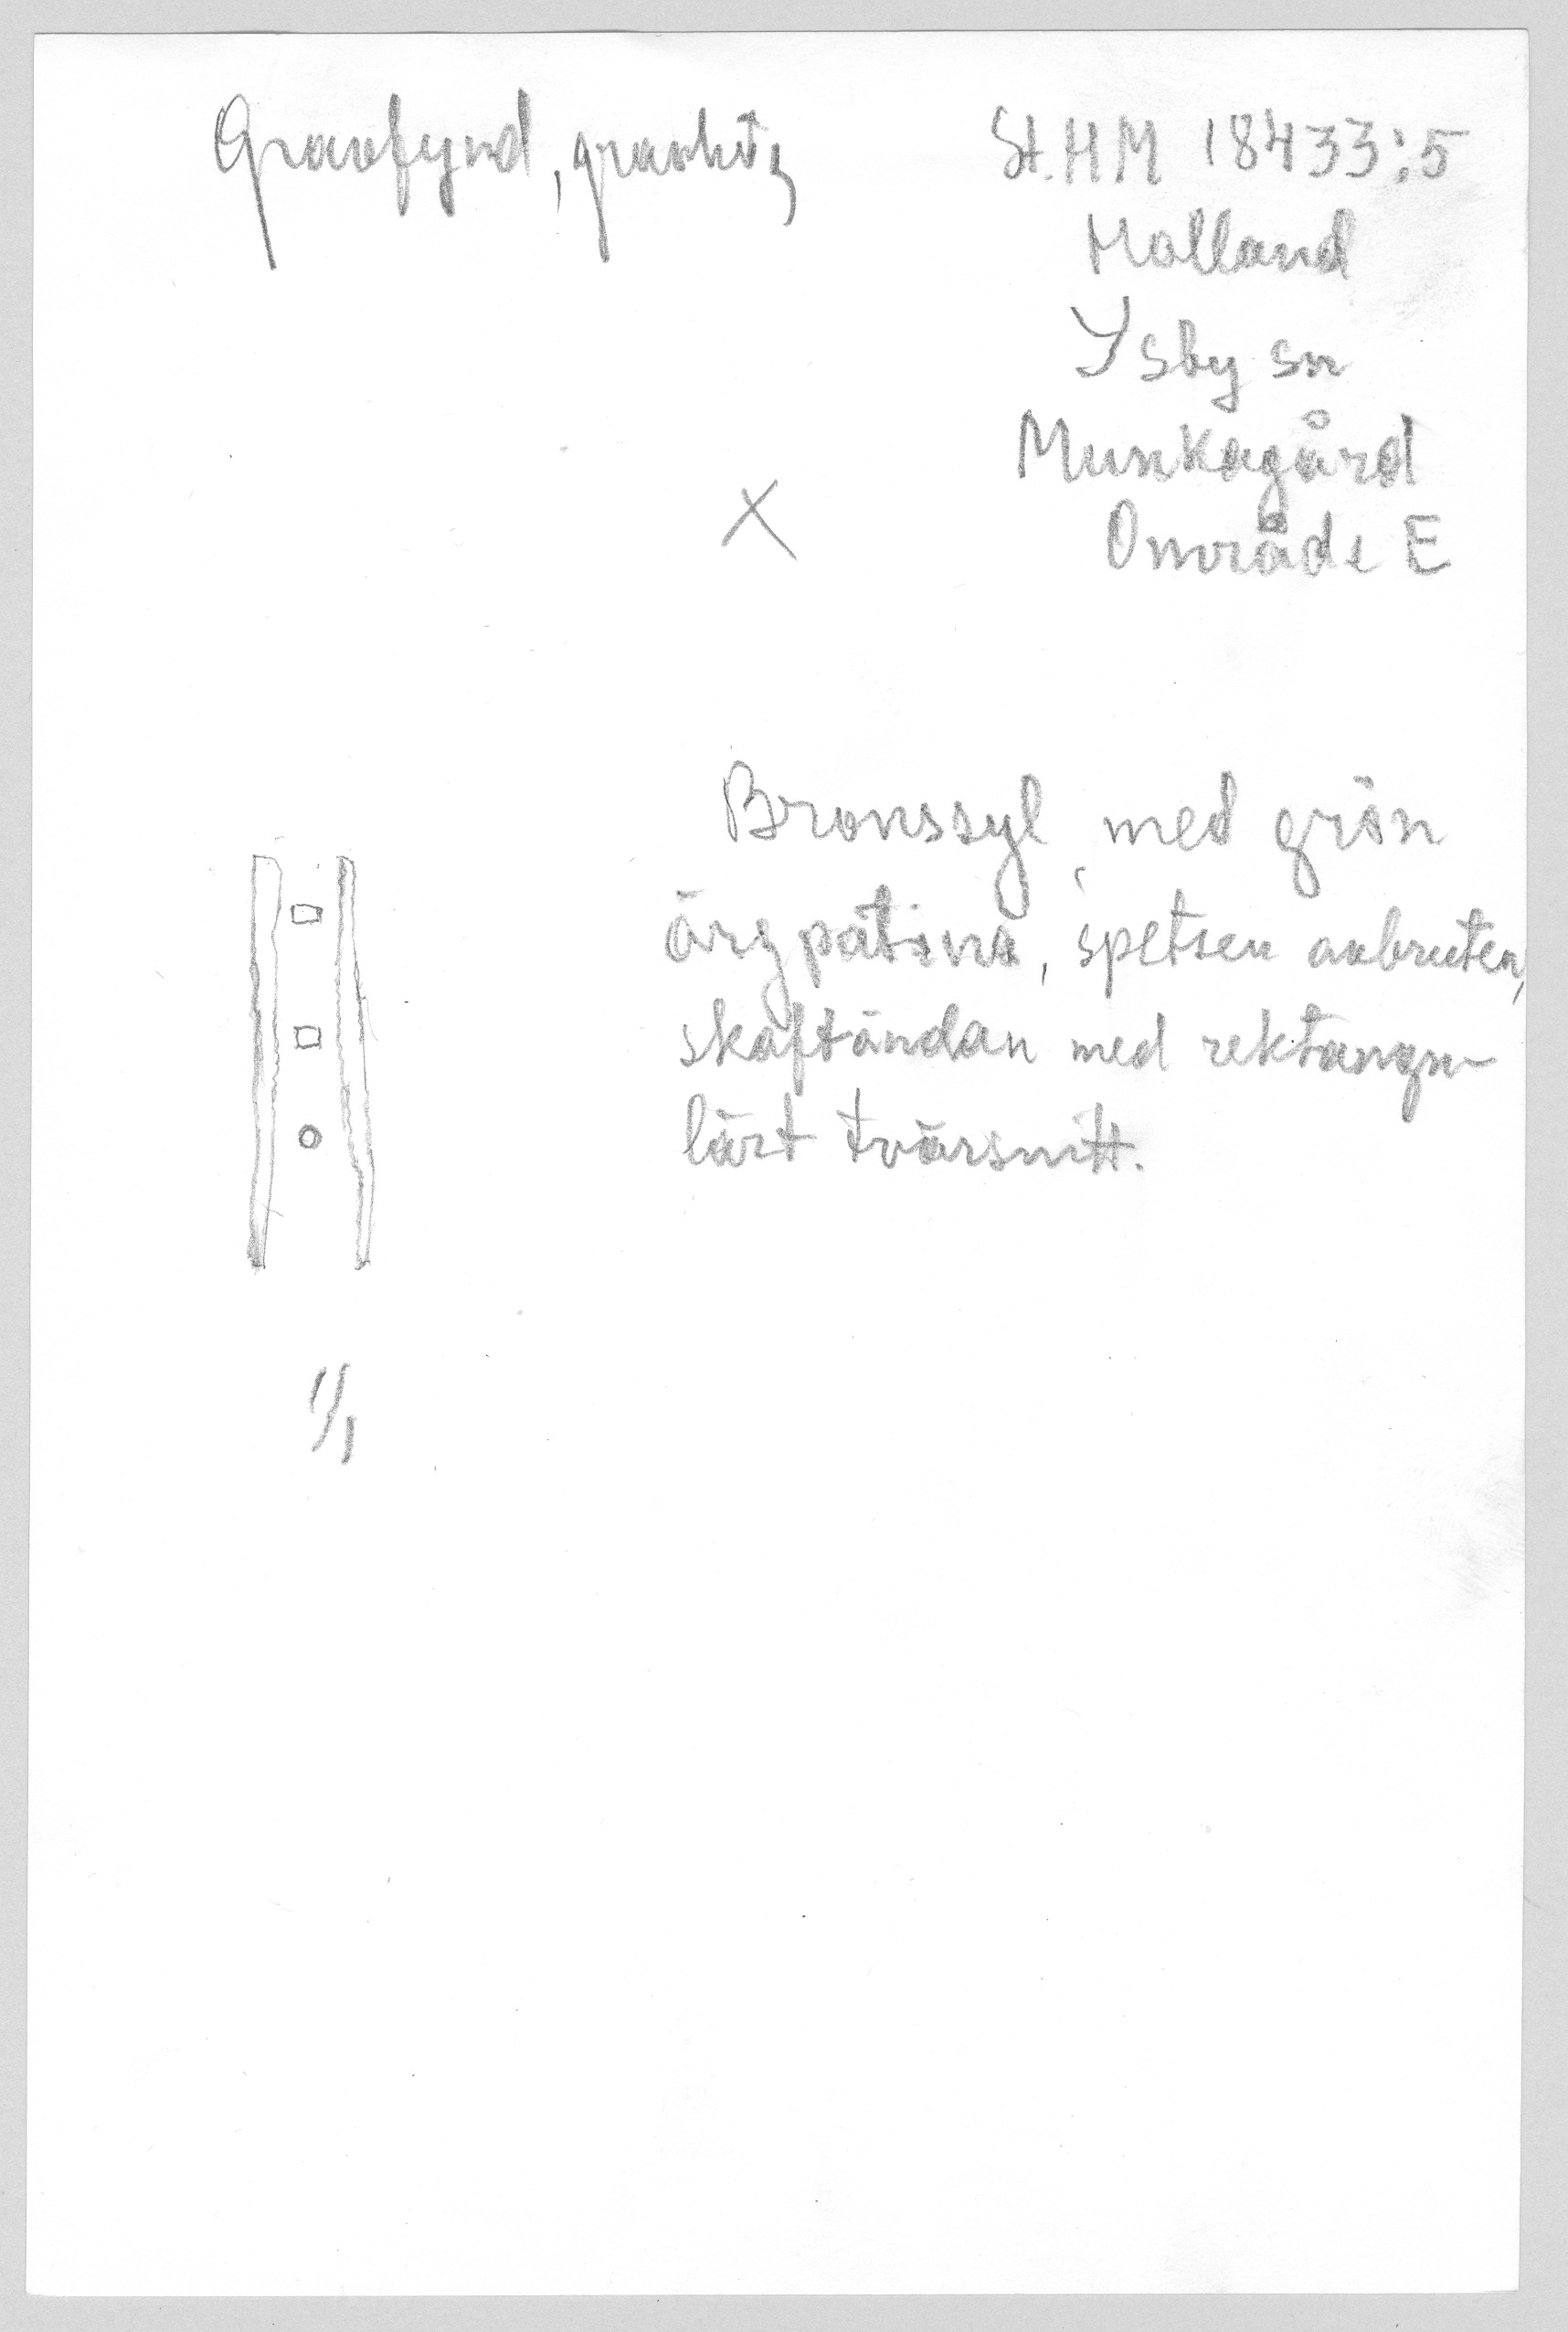 Gravfynd, gravhög
St.HM 18433:5
Halland
Ysby sn
Munkagård
Område E
X
Bronssyl, med grön
ärgpatina, spetsen avbruten,
skaftändan med rektangu-
lärt tvärsnitt.
1/1